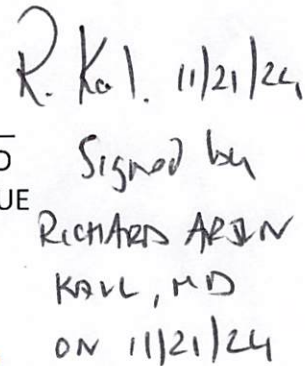 R. Kal. 11/21/24
D
Signed by
UE
RICHARD ARJUN
KAUL, MD
ON 11/21/24